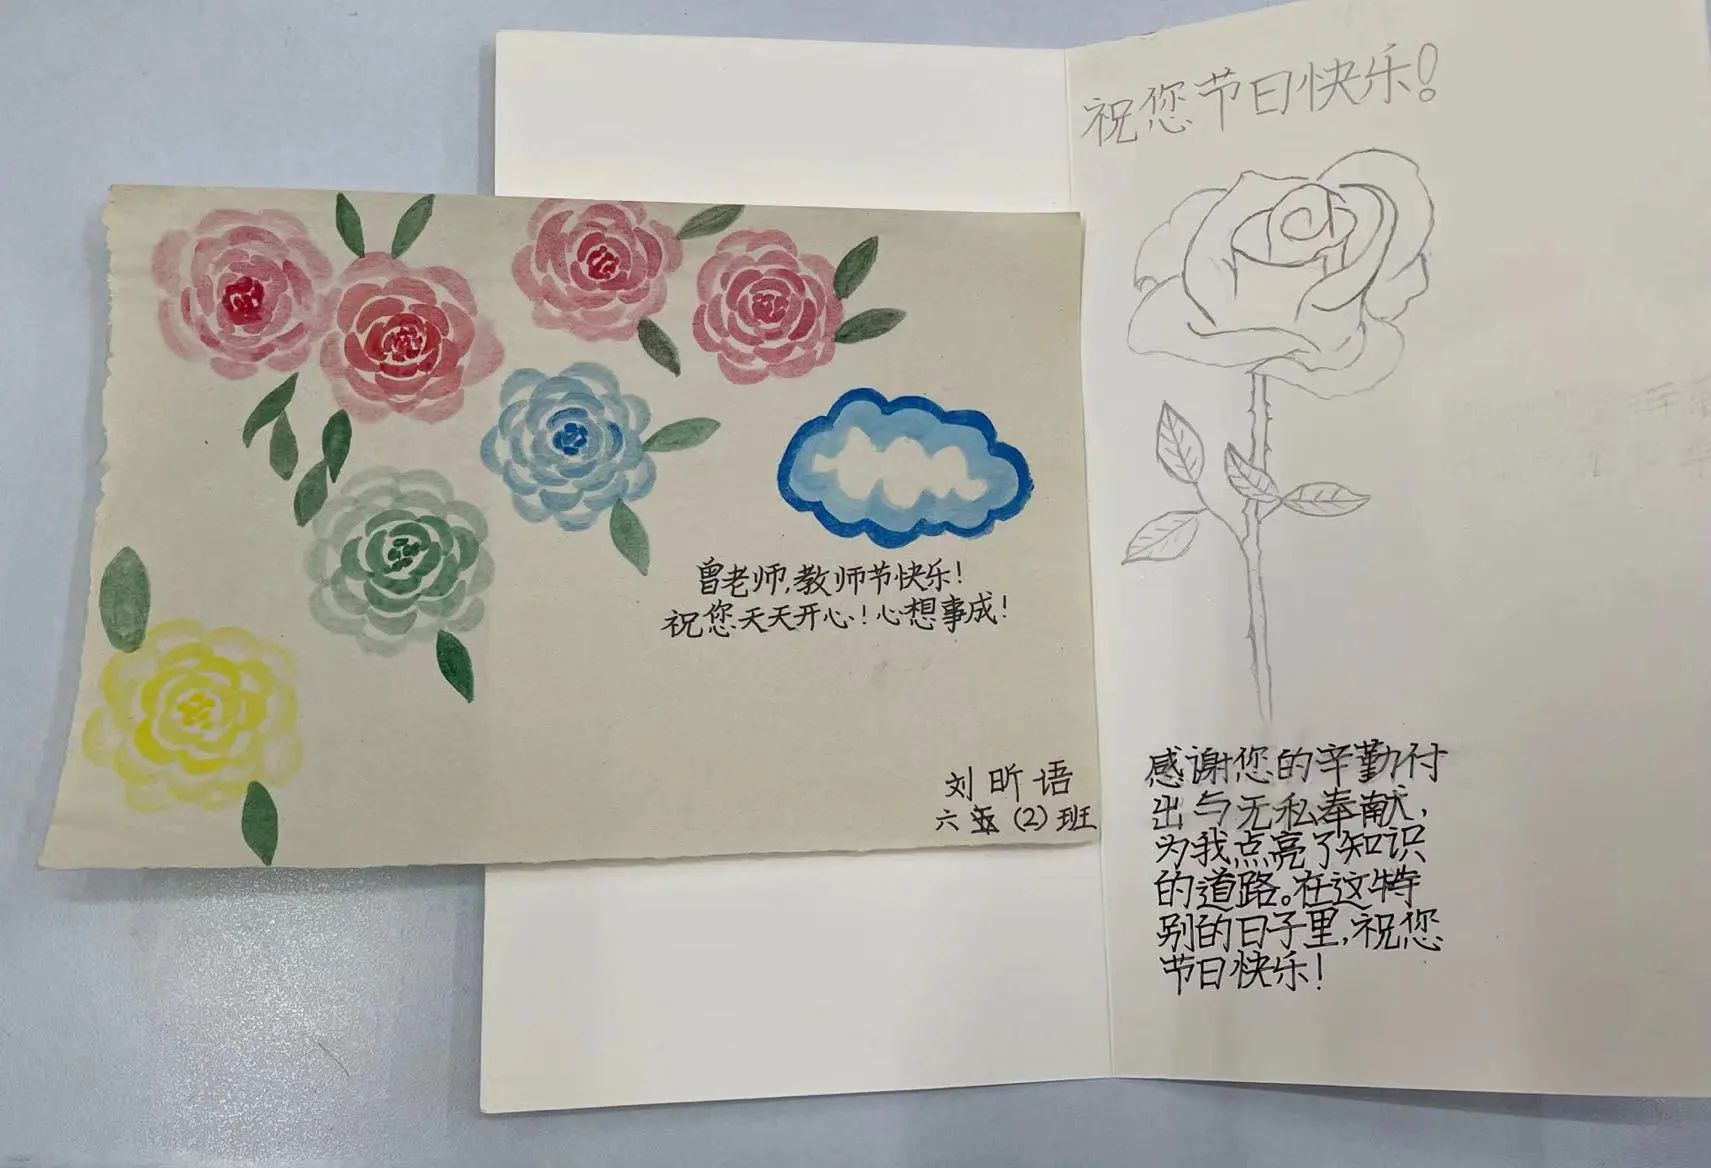 曾老师,教师节快乐!
祝您天天开心!心想事成!
刘昕语
六(2)班
祝您节日快乐!
感谢您的辛勤付
出与无私奉献,
为我点亮了知识
的道路。在这特
别的日子里,祝您
节日快乐!